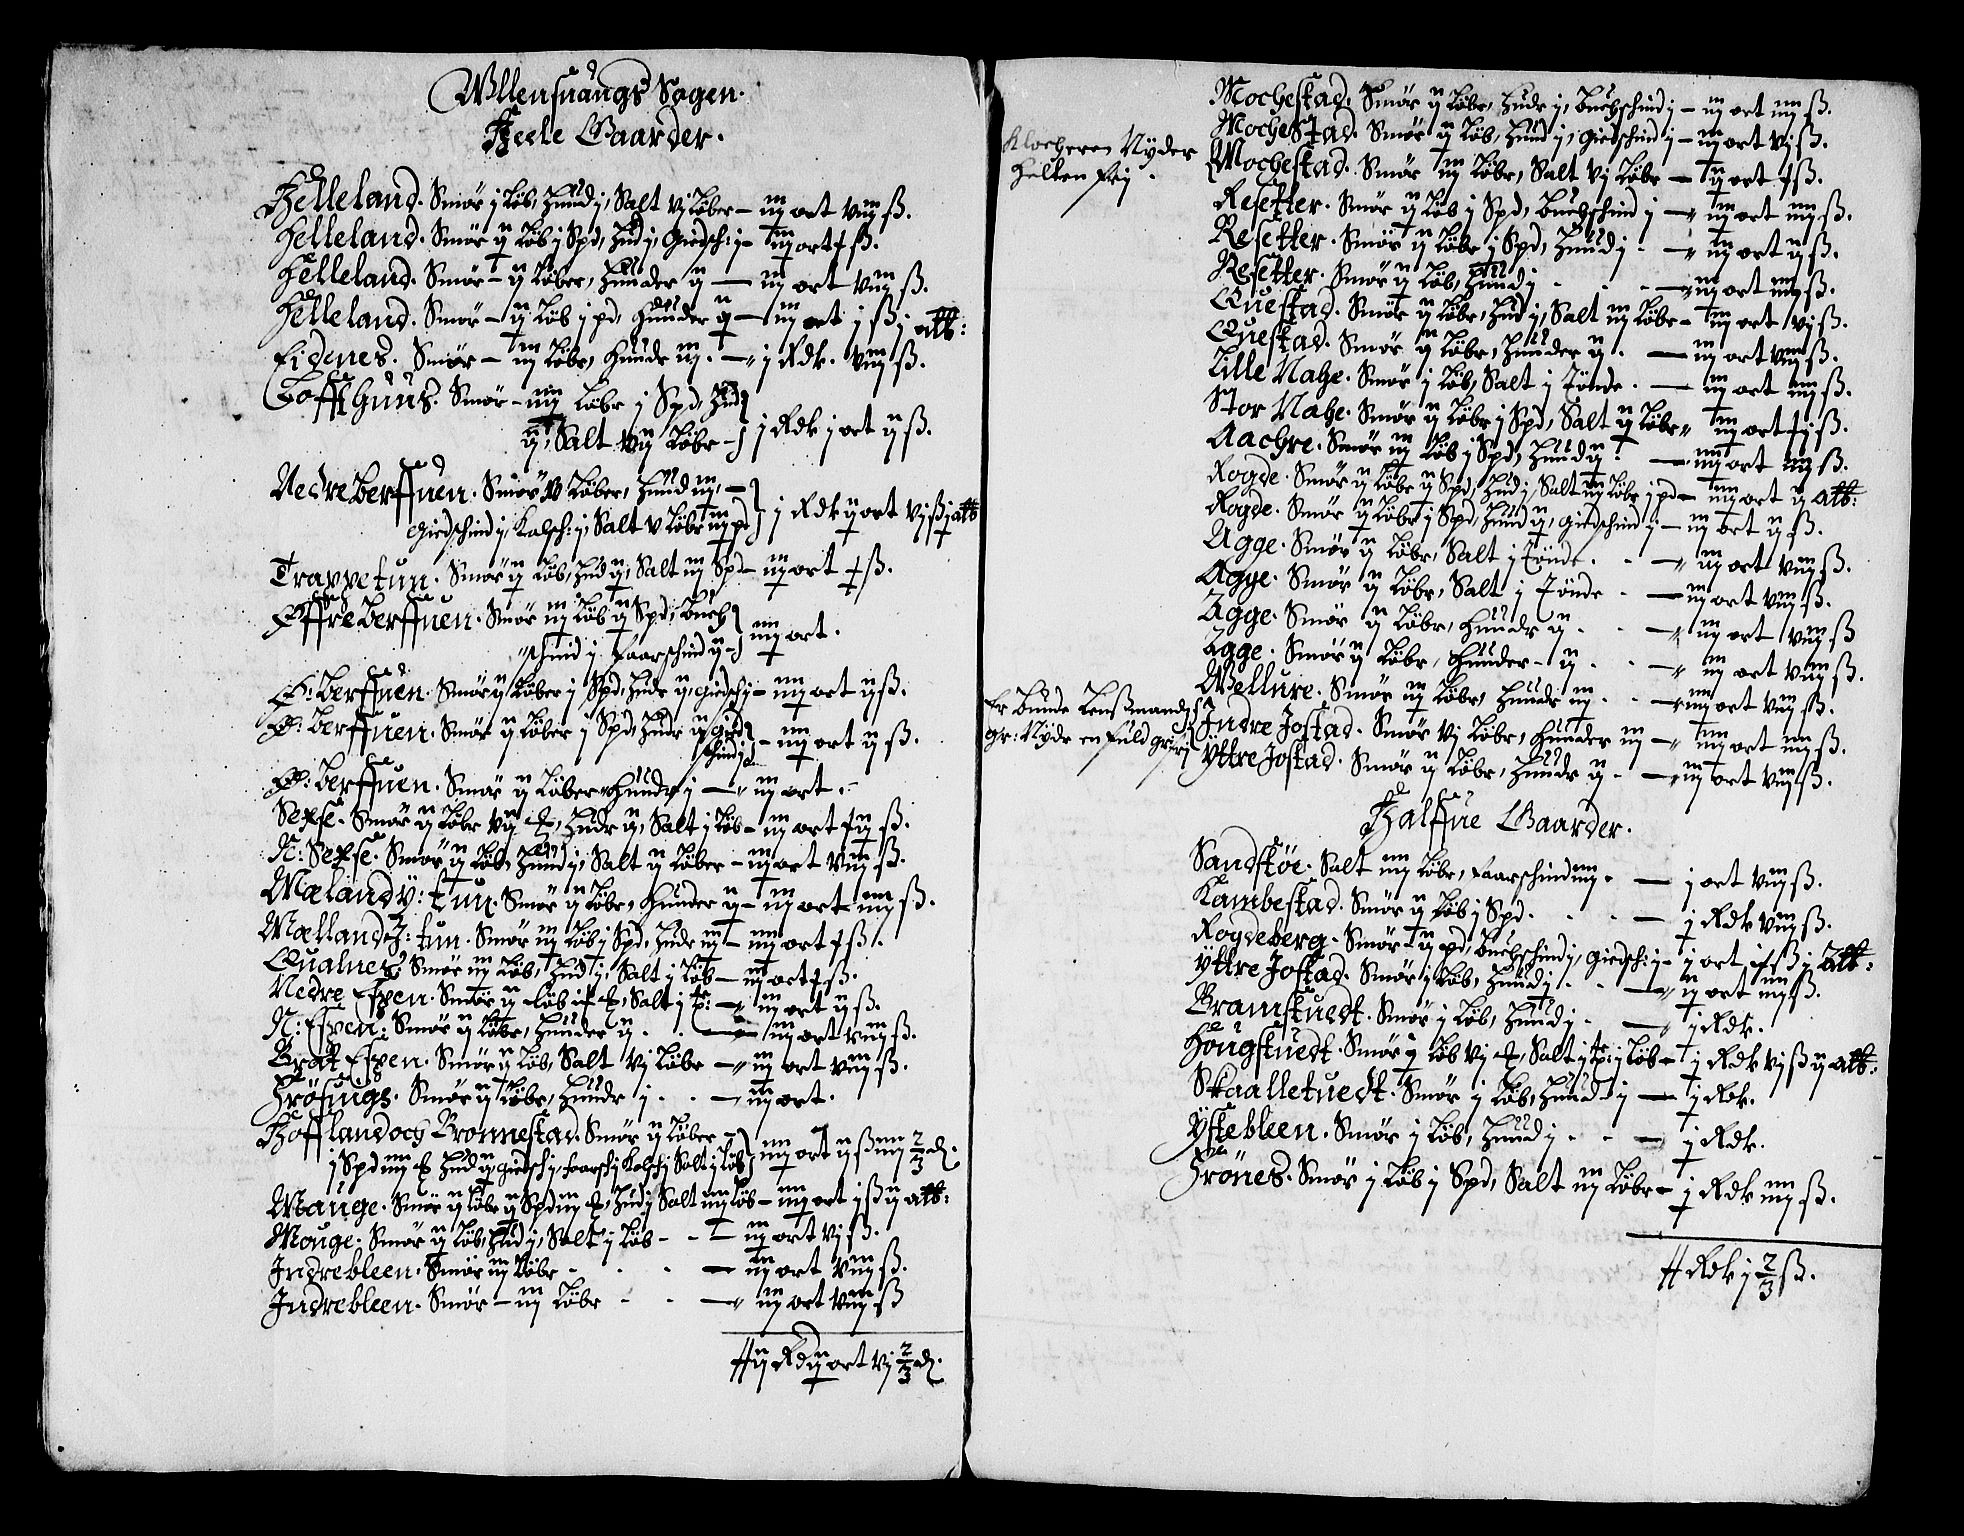 Wllensuangs Sogen.
Heele Gaarder.
Helleland. Smör j Löb, Hud j, Salt vj Löber - iij ort viij ß.
Helleland. Smör ij Löb j Spd, Hud j, Giedsch: j - iij ort ß.
Helleland. Smör - ij Löber, Huuder ij - iij ort viij ß.
Helleland. Smör - ij Löb j pd, Huuder ij - iij ort j ß j alb:
Eidenes. Smör - iij Löbr, Huudr iij. - j Rdk. viij ß.
Loffthuus. Smör - iiij Löbr j Spd, Hud
ij, Salt vij Löbr - j Rdk j ort ij ß.
Nedre Berffuen. Smör v Löber, Huud iij, -
Giedschind j, Kalsch: j, Salt v Löbr iij pd j Rdk ij ort vj ß j alb
Trappetun. Smör ij Löb, Hud ij, Salt iij Spd - iij ort ß.
Offre Berffuen. Smör iij Löb ij Spd, Buch
schind j faarschind ij - iiij ort.
O: Berffuen. Smör ij Löber j Spd, Hudr ij, giedsch j - iiij ort ij ß.
O: Berffuen. Smör ij Löber j Spd, Hudr ij gied
schind j - iiij ort ij ß.
O: Berffuen. Smör ij Löber Huudr j - iij ort.
Sexse. Smör ij Löbr vij, Hudr ij, Salt j Löb - iij ort ij ß.
N: Sexse. Smör ij Löb, Huud j, Salt ij Löber - iij ort viij ß.
Mæland y: tun. Smör ij Löbr, Huuder ij - iij ort iiij ß.
Mælland J: tun. Smör iij Löb j Spd, Hudr iij - iiij ort ß.
Qualnes. Smör iij Löb, Hud j, Salt j Löb - iij ort ß.
Nedre Espen. Smör ij Löb, Salt j - iij ort ij ß.
N: Espen: Smör ij Löbr, Huuder ij. - iij ort viij ß.
Brat Espen. Smör ij Löb, Salt vj Löbr - iij ort viij ß.
Frösuigs. Smör ij Löbr, Huudr j. - iij ort.
Hofflandoch Bronnestad. Smör ij Löber -
j Spd iiij Hud ij, giedsch j, faarsch j Kalsch j Salt j Löb iiij ort ij ß iiij 2/3 d.
Mauge. Smör ij Löbr ij Spd iij, Hud j Salt iiij Löb - iiij ort j ß ij alb:
Mouge. Smör ij Löb, Hud j, Salt j Löb - iij ort vj ß.
Indrebleen. Smör iij Löbr - iij ort viij ß.
Indrebleen. Smör - iij Löbr - iij ort viij ß
ij Rd ij ort vj 2/3 d.
Klocheren Nyder
helten frij.
Er bunde Lenßmand
gr: Nyde en fuld
Mochestad. Smör ij Löbr, Hudr j, Buchschind j - iij ort iiij ß.
Mochestad. Smör ij Löb, Huud j, giedschind j - iij ort vj ß.
Mochestad. Smör iij Löbr, Salt vj Löbr - ij ort ß.
Resetter. Smör ij Löb j Spd, Buchschind j - iij ort iiij ß.
Resetter. Smör ij Löbr j Spd, Huud j. - iij ort ij ß.
Resetter. Smör ij Löb, Huud j - iij ort iiij ß.
Questad. Smör ij Löbr, Hud j, Salt iij Löbr - iij ort vj ß.
Questad. Smör ij Löbr, Huuder ij. - iij ort viij ß.
Lille Nahe. Smör j Löb, Salt j Tönde. - iij ort iiij ß.
Stor Nahe. Smör ij Löbr j Spd, Salt ij Löbr iij ort ß.
Aachre. Smör iij Löb j Spd, Huud ij. - iiij ort iiij ß.
Rogde. Smör ij Löbr ij Spd, Hud j, Salt iij Löbr j pd - iiij ort ij alb:
Rogde. Smör ij Löbr j Spd, Huud ij, giedschind j - iij ort ij ß.
Agge. Smör ij Löbr, Salt j Tönde. - iij ort viij ß.
Agge. Smör ij Löbr, Salt j Tönde - iij ort viij ß.
Agge. Smör ij Löbr, Huudr ij. - iij ort viij ß
Agge. Smör ij Löbr, Huuder - ij. - iij ort viij ß.
Wellure. Smör iij Löbr, Huudr iij. - iiij ort viij ß.
Indre Jostad. Smör vj Löbr, Huuder iij - iiij ort iiij ß.
Yttre Jostad. Smör ij Löbr, Huudr ij. - iij ort viij ß.
Halffue Gaarder.
Sandstöe. Salt iiij Löbr, faarschind iiij. - j ort viij ß.
Kambestad. Smör ij Löb j Spd. - j Rdk viij ß.
Rogdeberg. Smör - ij pd, Buchschind j, giedsch: j - j ort ß j alb:
Yttre Jostad. Smör j Löb, Huud j. - ij ort iiij ß.
Bramstuedt. Smör j Löb, Huud j. - j Rdk.
Hougstuedt. Smör ij Löb vj, Salt j j Löb - j Rdk vj ß ij alb:
Skaalletuedt. Smör j Löb, Huud j - j Rdk.
Ystebleen. Smör j Löb, Huud j. - j Rdk.
Frönes. Smör j Löb j Spd, Salt iij Löbr - j Rdk iiij ß.
Rdk j 2/3 ß.